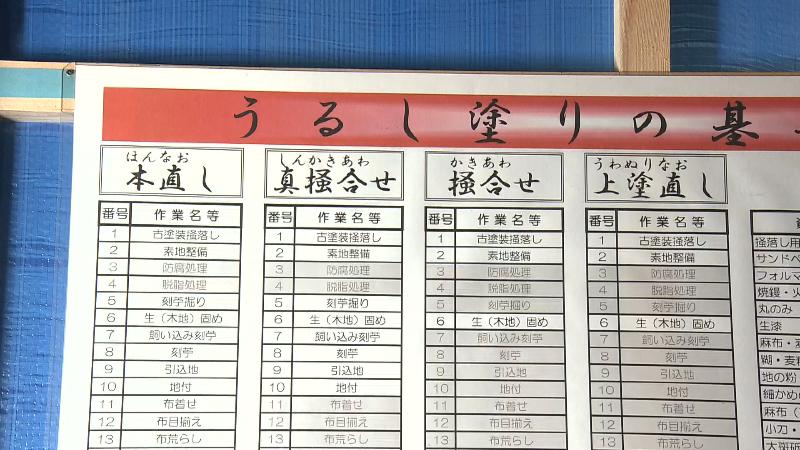 うるし塗りの基
ほんなお
本直し
番号 作業名等
1 古塗装掻落し
2 素地整備
3 防腐処理
4 脱脂処理
5 刻苧掘り
6 生（木地）固め
7 飼い込み刻苧
8 刻苧
9 引込地
10 地付
11 布着せ
12 布目揃え
13 布荒らし
しんかきあわ
真掻合せ
番号 作業名等
1 古塗装掻落し
2 素地整備
3 防腐処理
4 脱脂処理
5 刻苧掘り
6 生（木地）固め
7 飼い込み刻苧
8 刻苧
9 引込地
10 地付
11 布着せ
12 布目揃え
13 布荒らし
かきあわ
掻合せ
番号 作業名等
1 古塗装掻落し
2 素地整備
3 防腐処理
4 脱脂処理
5 刻苧掘り
6 生（木地）固め
7 飼い込み刻苧
8 刻苧
9 引込地
10 地付
11 布着せ
12 布目揃え
13 布荒らし
うわぬりなお
上塗直し
番号 作業名等
1 古塗装掻落し
2 素地整備
3 防腐処理
4 脱脂処理
5 刻苧掘り
6 生（木地）固め
7 飼い込み刻苧
8 刻苧
9 引込地
10 地付
11 布着せ
12 布目揃え
13 布荒らし
掻落し用
サンドペ
フォルマ
焼鏝・火
丸のみ
生漆
麻布・麦
糊・麦粉
地の粉
細かめの
麻布（
小刀・
大斑研